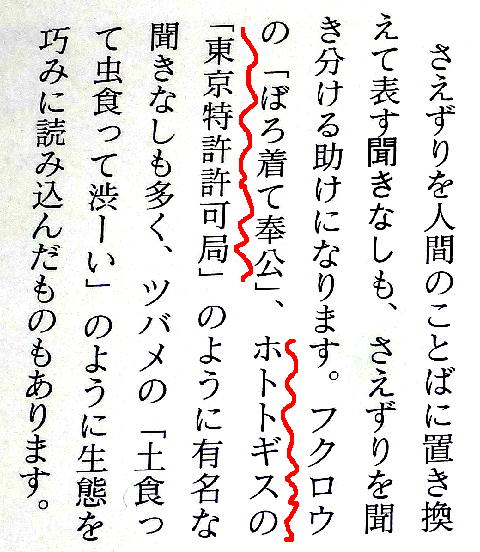 さえずりを人間のことばに置き換
えて表す聞きなしも、さえずりを聞
き分ける助けになります。フクロウ
の「ぼろ着て奉公」、ホトトギスの
「東京特許許可局」のように有名な
聞きなしも多く、ツバメの「土食っ
て虫食って渋ーい」のように生態を
巧みに読み込んだものもあります。